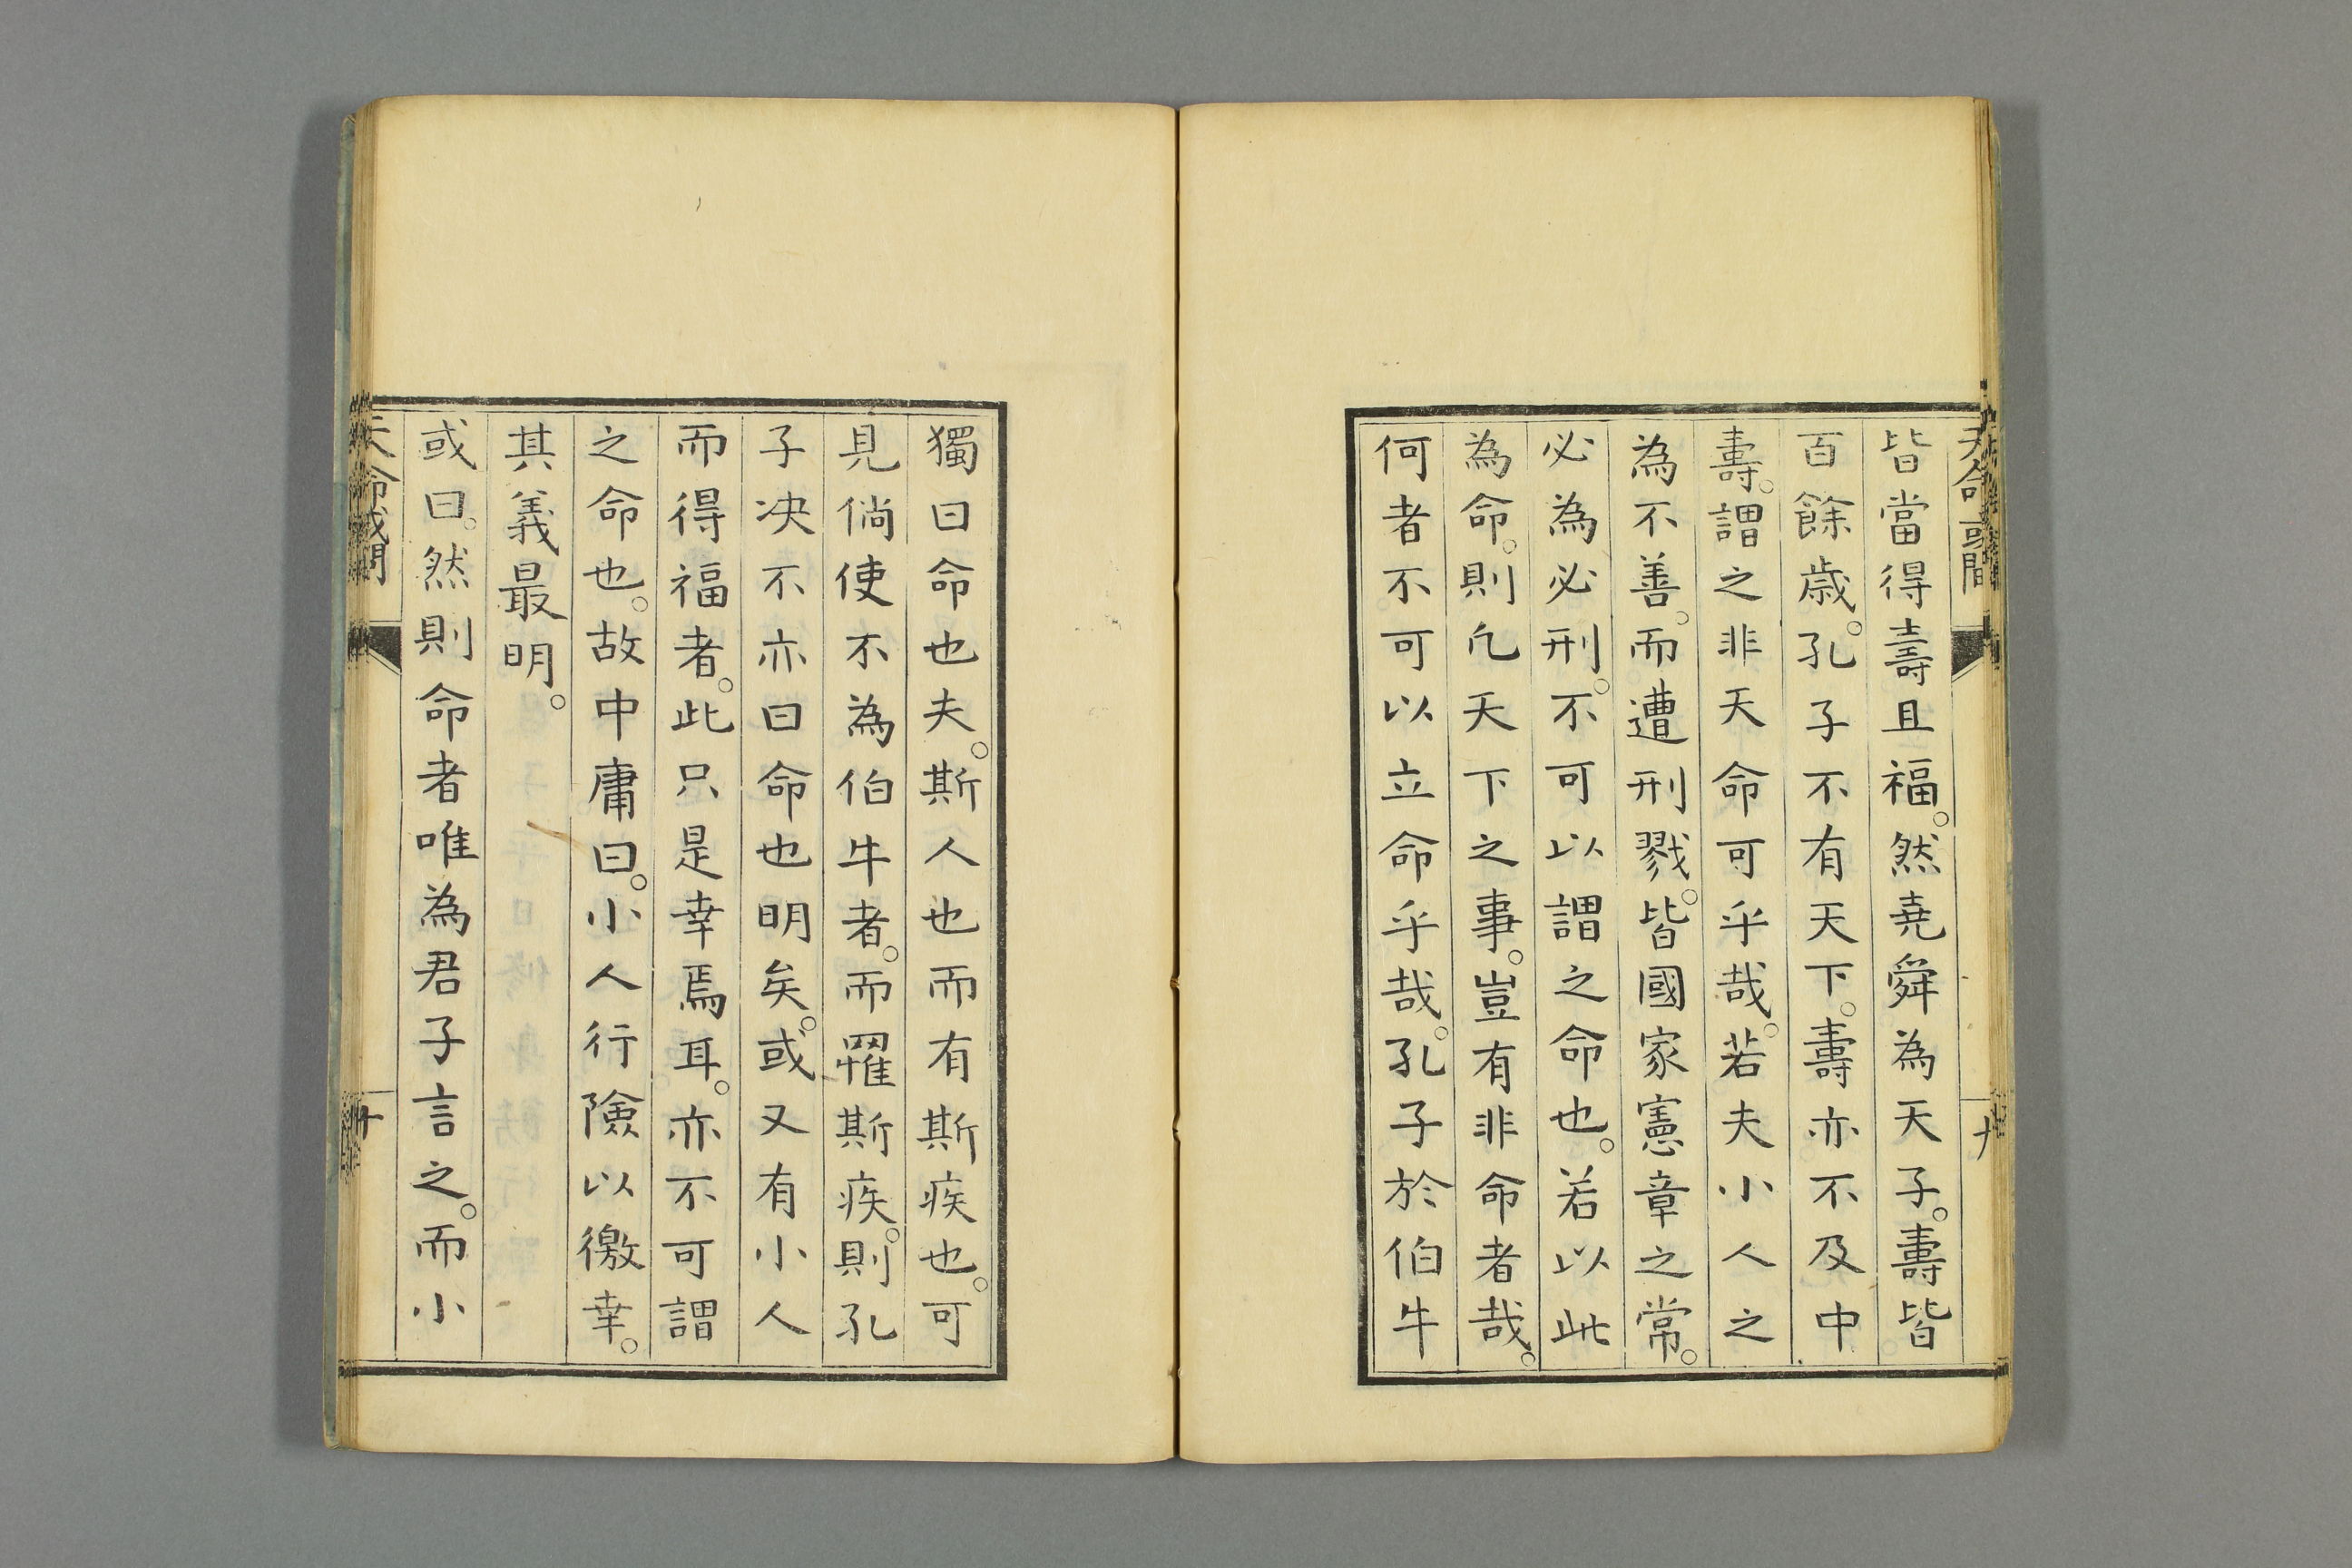 天命或問
九
皆當得壽且福。然堯舜為天子。壽皆
百餘歲。孔子不有天下。壽亦不及中
壽。謂之非天命可乎哉。若夫小人之
為不善。而遭刑戮。皆國家憲章之常。
必為必刑。不可以謂之命也。若以此
為命。則凡天下之事。豈有非命者哉。
何者不可以立命乎哉。孔子於伯牛
獨曰命也夫。斯人也而有斯疾也。可
見倘使不為伯牛者。而罹斯疾。則孔
子决不亦曰命也明矣。或又有小人
而得福者。此只是幸焉耳。亦不可謂
之命也。故中庸曰。小人行險以徼幸。
其義最明。
或曰。然則命者唯為君子言之。而小
天命或問
十